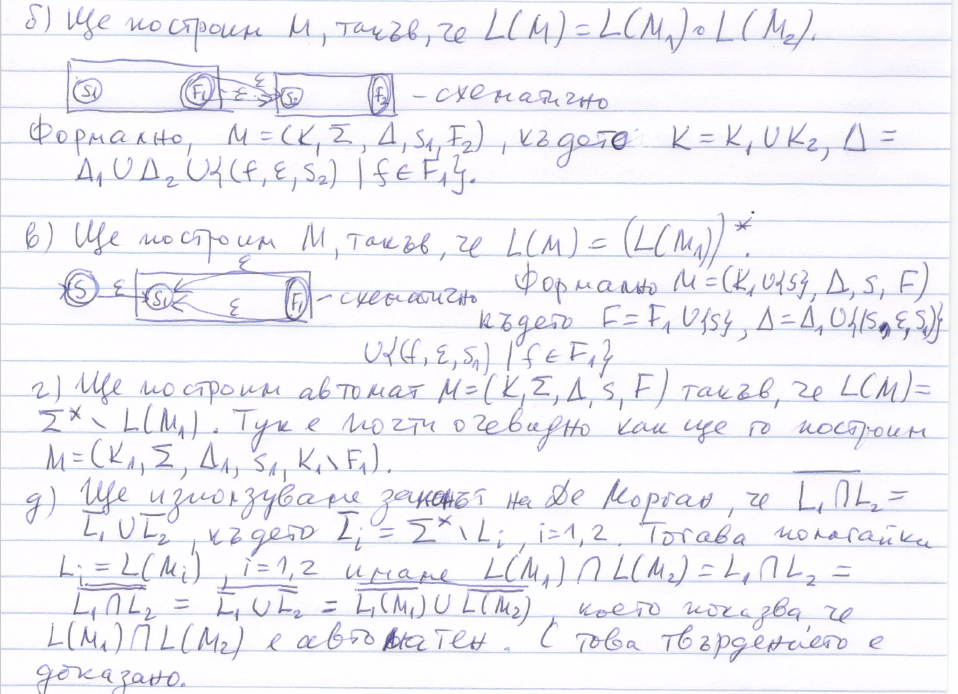 б) Ще построим M, такъв, че L(M) = L(M₁)∘L(M₂).
S₁ F₁ ε ε S₂ F₂ – схематично
Формално, M = (K, Σ, Δ, s₁, F₂), където K = K₁ ∪ K₂, Δ =
Δ₁ ∪ Δ₂ ∪ {(f, ε, s₂) | f ∈ F₁}.
в) Ще построим M, такъв, че L(M) = (L(M₁))*.
S ε S₁ ε ε F₁ – схематично Формално M = (K₁ ∪ {s}, Δ, s, F)
където F = F₁ ∪ {s}, Δ = Δ₁ ∪ {(s, ε, s₁)}
∪ {(f, ε, s₁) | f ∈ F₁}
г) Ще построим автомат M = (K, Σ, Δ, s, F) такъв, че L(M) =
Σ* \ L(M₁). Тук е почти очевидно как ще го построим
M = (K₁, Σ, Δ₁, s₁, K₁ \ F₁).
д) Ще използваме законът на Де Морган, че L̅₁̅ ̅∩̅ ̅L̅₂̅ =
L̅₁ ∪ L̅₂, където L̅ᵢ = Σ* \ Lᵢ, i = 1,2. Тогава полагайки
Lᵢ = L(Mᵢ), i = 1,2 имаме L(M₁) ∩ L(M₂) = L₁ ∩ L₂ =
L̿₁̿ ̿∩̿ ̿L̿₂̿ = L̅₁ ∪ L̅₂ = L₁(M₁) ∪ L(M₂), което показва, че
L(M₁) ∩ L(M₂) е автоматен. С това твърдението е
доказано.